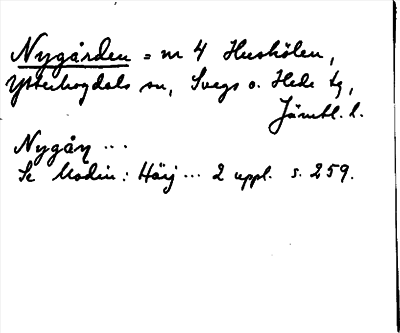 Nygården = nr 4 Huskölen,
Ytterhogdals sn, Svegs o. Hede tg,
Jämtl. l.
Nygåṇ ...
Se Modin: Härj ... 2 uppl. s. 259.